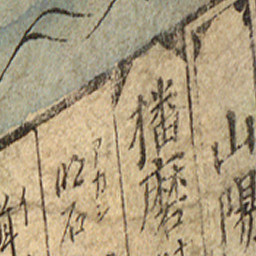 山陽
播磨
アカシ
明石